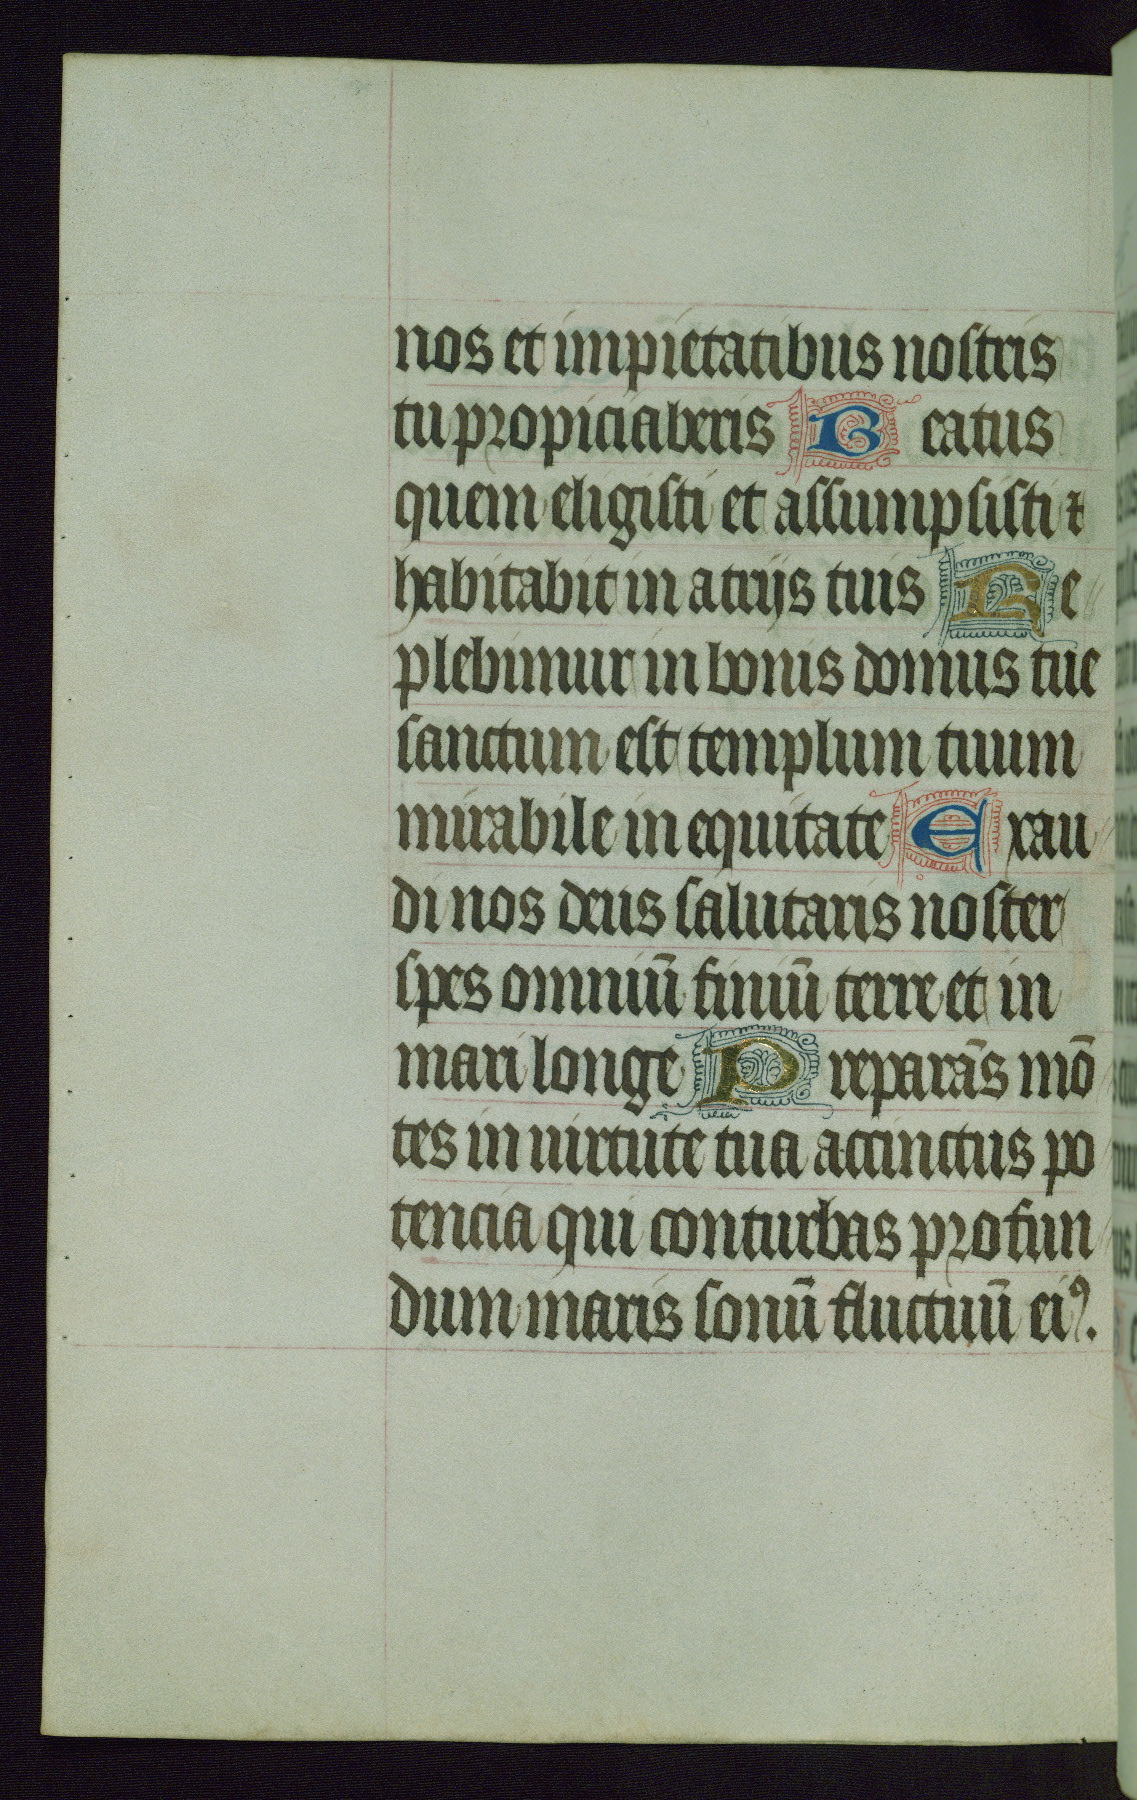 nos et impietatibus nostris
tu propiciaberis Beatus
quem eligisti et assumpsisti ⁊
habitabit in atrijs tuis Re
plebimur in bonis domus tue
sanctum est templum tuum
mirabile in equitate Exau
di nos deus salutaris noster
spes omniū finiū terre et in
mari longe Preparās mō
tes in uirtute tua accinctus po
tencia qui conturbas profun
dum maris sonū fluctuū eiꝰ.